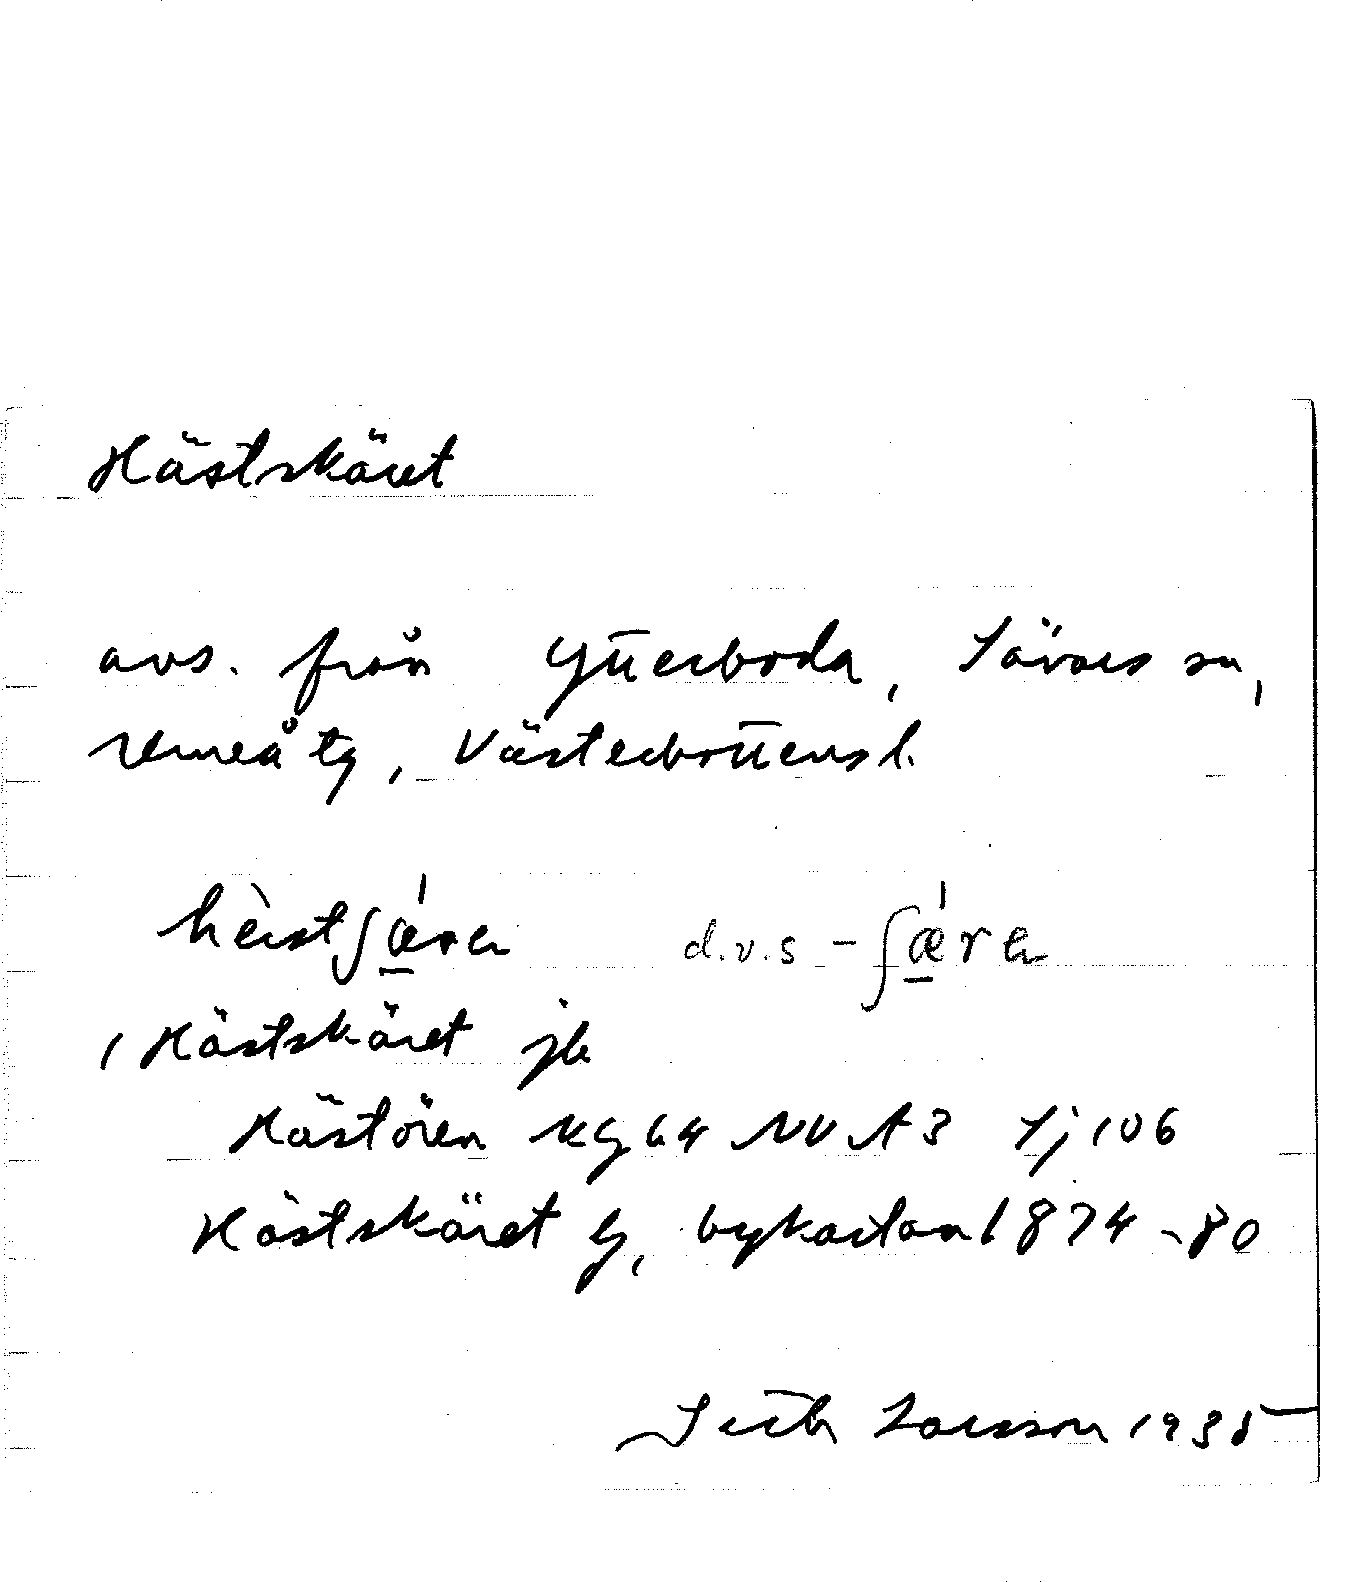 Hästskäret
avs. från Ytterboda, Sävars sn,
Umeå tg, Västerbottens l.
hèstʃǽra d.v.s - ʃǽra
, Hästskäret jb
Hästören KG 64 NV A3 Sj 106
Hästskäret Ly, bykartan 1874-80
Seth Larsson 1935